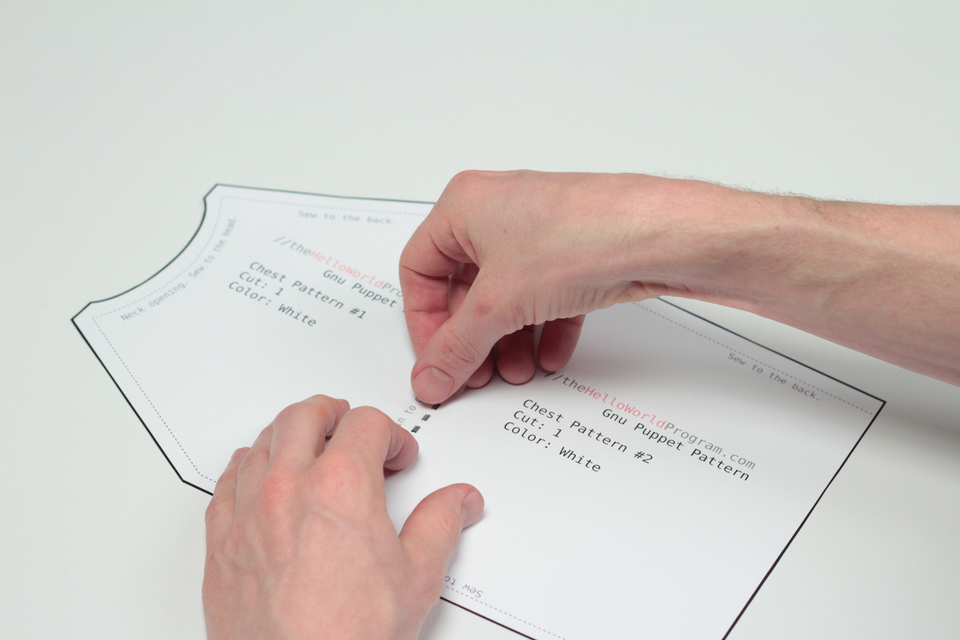 Sew to the back.
Neck opening. Sew to the head.
//theHelloWorldPro
Gnu Puppet
Chest Pattern #1
Cut: 1
Color: White
Sew to the back.
//theHelloWorldProgram.com
Gnu Puppet Pattern
Chest Pattern #2
Cut: 1
Color: White
to
Sew to